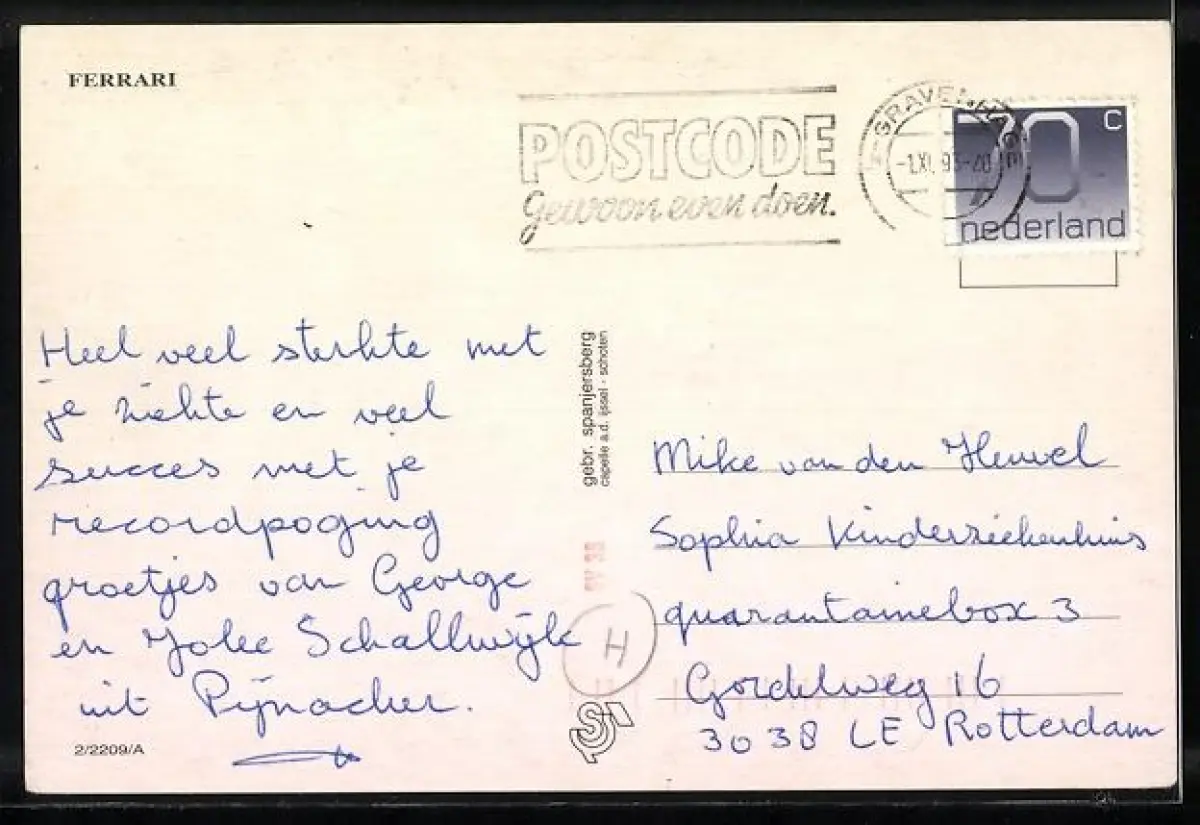 FERRARI
POSTCODE
Gewoon even doen.
'S-GRAVENHAGE
-1.XI.93-20
70 C
nederland
Heel veel sterkte met
je ziekte en veel
succes met je
recordpoging
groetjes van George
en Jolee Schallwijk
uit Pijnacker.
2/2209/A
gebr. spanjersberg
capelle a.d. ijssel - schoten
H
Mike van den Heuvel
Sophia Kinderziekenhuis
quarantainebox 3
Gordelweg 16
3038 LE Rotterdam